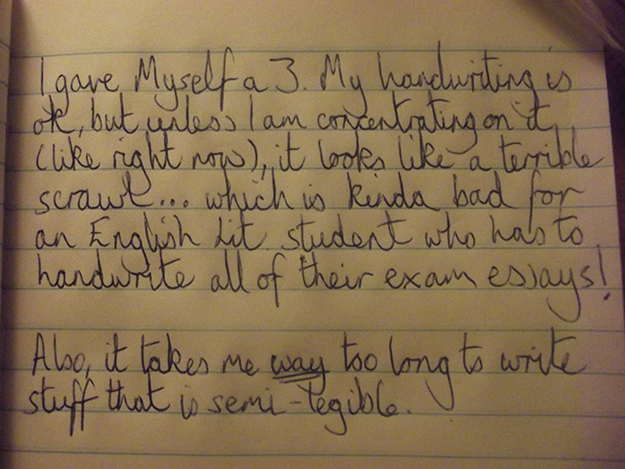 I gave Myself a 3. My handwriting is
ok, but unless I am concentrating on it
(like right now), it looks like a terrible
scrawl... which is kinda bad for
an English Lit student who has to
handwrite all of their exam essays!
Also, it takes me way too long to write
stuff that is semi-legible.